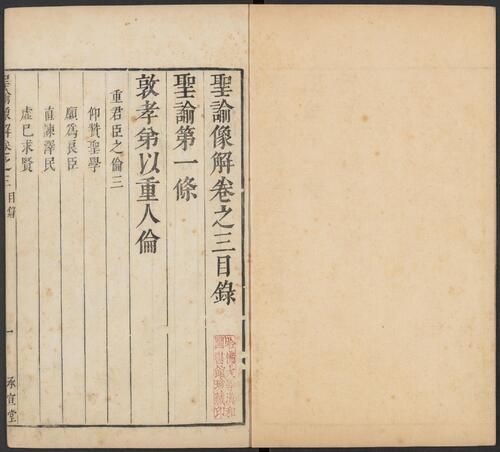 聖諭像解卷之三目錄
聖諭第一條
敦孝弟以重人倫
重君臣之倫三
仰贊聖學
願為良臣
直諫澤民
虛己求賢
聖諭像解卷之三 目錄 一 承宣堂
哈佛大學漢和圖書館珍藏印